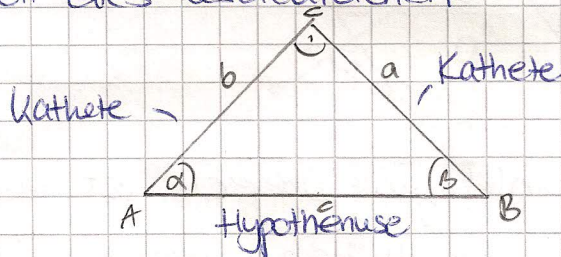 C
b
a
Kathete
Kathete
α
β
A
c
B
Hypothenuse